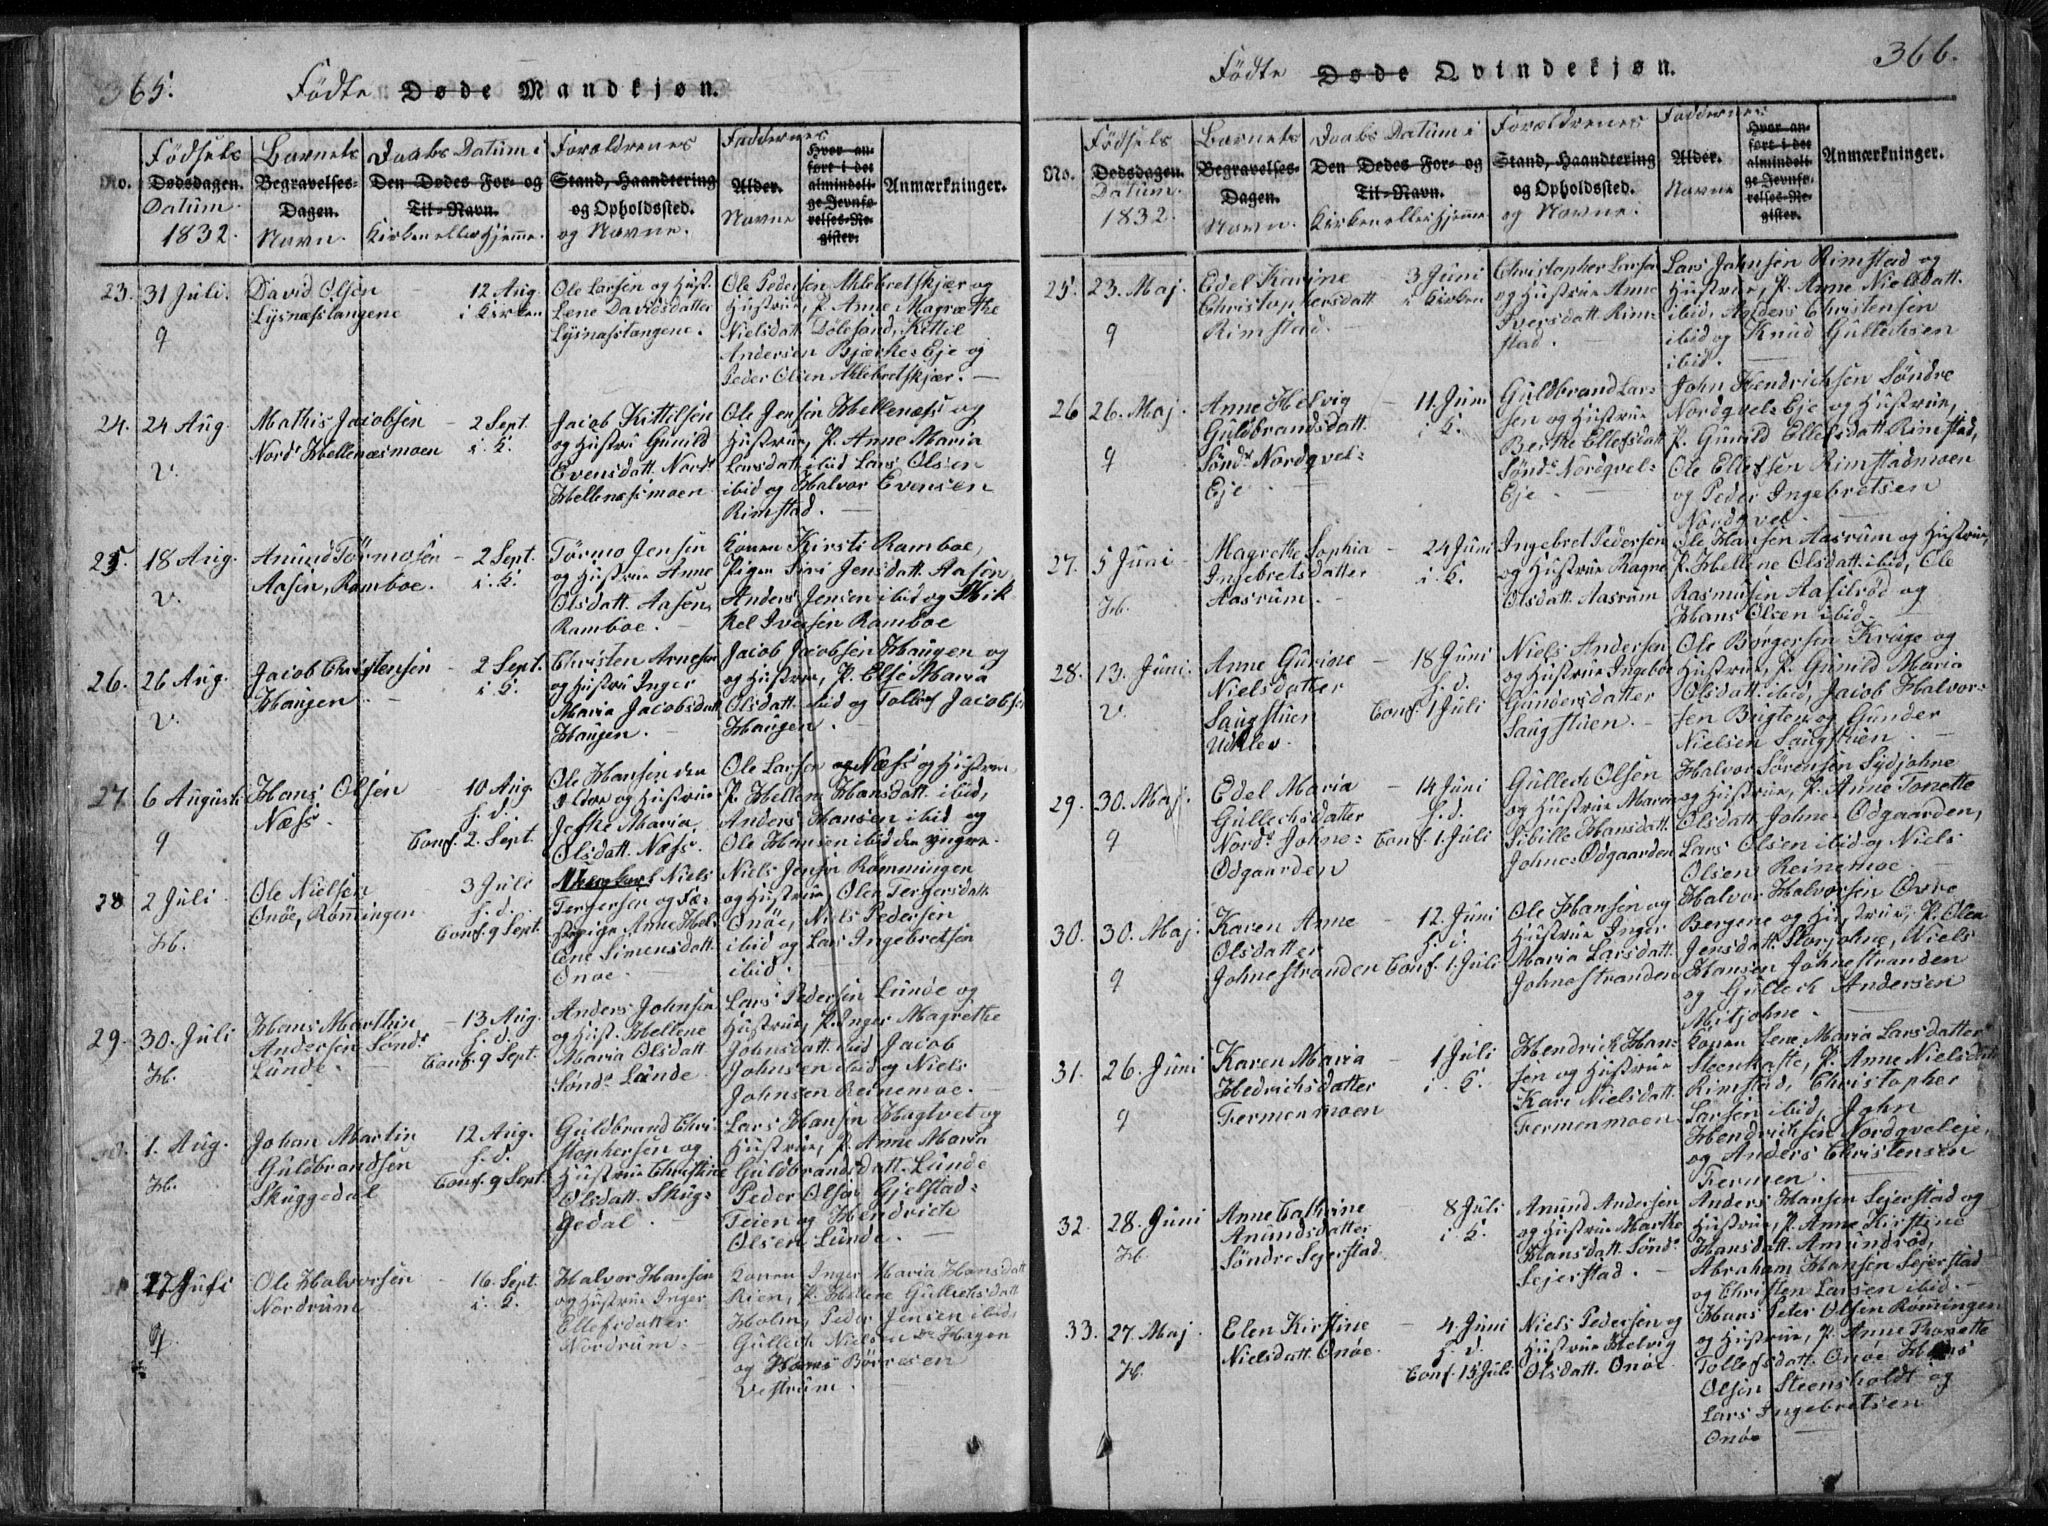 365.
Födte Døde Mandkjøn.
No.
Födsels
Dødsdagen.
Datum.
1832.
Barnets
Begravelses-
Dagen.
Navn.
Daabs Datum i
Den Dødes For- og
Til-Navn.
Kirken eller Hjemme.
Forældrenes
Stand, Haandtering
og Opholdssted.
og Navne.
Faddernes
Alder.
Navne
Hvor an-
ført i det
almindeli-
ge Jevnfø-
relses-Re-
gister.
Anmærkninger.
23.
31 Juli.
9
David Olsen
Lysnæstangene
12 Aug.
i Kirken
Ole Larsen og Hust.
Lene Davidsdatter
Lysnæstangene.
Ole Pedersen Ahlebretskjær og
Hustrue, P. Anne Magrethe
Nielsdatt. Dölesand, Kittil
Andersen Bjærkes Eje og
Peder Olsen Ahlebretskjær. —
24.
24 Aug.
V.
Mathis Jacobsen
Nordr Hellenæsmoen
2 Sept.
i. K.
Jacob Kittilsen
og Hustru Gunild
Evensdatt. Nordr
Hellenæsmoen
Ole Jensen Hellenæs og
Hustrue, P. Anne Maria
Larsdatt. ibid Lars Olsen
ibid og Halvor Evensen
Rimstad. —
25.
18 Aug.
V.
Amund Tormosen
Aasen, Ramboe.
2 Sept.
i. K.
Tørmo Jensen
og Hustrue Anne
Olsdatt. Aasen,
Ramboe. —
Konen Kirsti Ramboe,
Pigen Siri Jensdatt. Aasen,
Anders Jensen ibid og Mik
kel Iversen Ramboe
26.
26 Aug.
V.
Jacob Christensen
Haugen
2 Sept.
i. K.
Christen Arnesen
og Hustru Inger
Maria Jacobsdatt.
Haugen.
Jacob Jacobsen Haugen og
og Hustrue, P. Else Maria
Olsdatt. ibid og Tollef Jacobsen
Haugen.
27.
6 August
9
Hans Olsen
Næss.
10 Aug.
h. d.
Conf. 2. Sept.
Ole Hansen den
Ældre og Hustrue
Jefke Maria
Olsdatt. Næss.
Ole Larsen Næss og Hustrue,
P. Hellene Hansdatt. ibid,
Anders Hansen ibid og
Ole Hansen ibid den yngre.
28
2 Juli
H.
Ole Nielsen
Onöe, Römmingen
3 Juli
h. d.
Conf. 9 Sept.
Niels
Tergersen og Fæ-
stepige Anne Hel-
ene Simensdatt.
Onoe
Niels Jensen Römmingen
og Hustrue, Olea Tergersdatt.
Onöe, Niels Pedersen
ibid og Lars Ingebretsen
ibid.
29.
30. Juli
H.
Hans Marthin
Andersen Søndr
Lunde.
13 Aug.
h. d.
Conf. 9 Sept.
Anders Johnsen
og Hust. Hellene
Maria Olsdatt.
Søndr Lunde
Lars Pedersen Lunde og
Hustrue, P. Inger Magrethe
Johnsdatt. ibid Jacob
Johnsen ibid og Niels
Johnsen Reinemoe.
1. Aug.
H.
Johan Martin
Guldbrandsen
Skuggedal
12 Aug.
h. d.
Conf. 9 Sept.
Guldbrand Chri-
stophersen og
Hustrue Christine
Olsdatt. Skug-
gedal. —
Lars Hansen Hogtvet og
Hustrue, P. Anne Maria
Guldbrandsdatt. Lunde
Peder Olsen Gjelstad-
Teien og Hendrich
Olsen Lunde. —
17 Juli
9
Ole Halvorsen
Nordrum
16. Sept
i. K.
Halvor Hansen
og Hustrue Inger
Ellefsdatter
Nordrum. —
Konen Inger Maria Hansdatt.
Rien, P. Hellene Gullichsdatt.
Holm, Peder Jensen ibid,
Gullech Nielsen Hagen
og Hans Börresen
Vestrum.
366.
Födte Døde Qvindekjøn.
No.
Födsels
Dødsdagen.
Datum.
1832.
Barnets
Begravelses-
Dagen.
Navn.
Daabs Datum i
Den Dødes For- og
Til-Navn.
Kirken eller Hjemme.
Forældrenes
Stand, Haandtering
og Opholdssted.
og Navne.
Faddernes
Alder.
Navne
Hvor an-
ført i det
almindeli-
ge Jevnfø-
relses-Re-
gister.
Anmærkninger.
25.
23. Maj.
9
Edel Karine
Christophersdatt.
Rimstad.
3 Juni
i Kirken
Christopher Larsen
og Hustrue Anne
Iversdatt. Rim-
stad.
Lars Johnsen Rimstad og
Hustrue, P. Anne Nielsdatt.
ibid, Anders Christensen
ibid og Knud Gullichsen
ibid.
26
26. Maj.
9
Anne Helvig
Guldbrandsdatt.
Søndr Nordqvel-
Eje
11 Juni
i. K.
Guldbrand Lar-
sen og Hustrue
Berthe Ellefsdatt.
Søndr Nordqvel-
Eje. —
John Hendrichsen Söndre
Nordqvels Eje og Hustrue,
P. Gunild Ellefsdatt. Rimstad,
Ole Ellefsen Rimstadmoen
og Peder Ingebretsen
Nordqvel.
27.
5 Juni
H.
Magrethe Sophia
Ingebretsdatter
Aasrum. —
24 Juni
i. K.
Ingebret Pedersen
og Hustrue Ragne
Olsdatt. Aasrum
Ole Hansen Aasrum og Hustrue,
P. Hellene Olsdatt. ibid, Ole
Rasmusen Aasilrød og
Hans Olsen ibid.
28.
13. Juni.
V.
Anne Gurine
Nielsdatter
Saugstuen
Udklev.
18 Juni
h. d.
Conf. 1 Juli
Niels Andersen
og Hustrue Ingebor
Gundersdatter
Saugstuen. —
Ole Börgersen Kruge og
Hustrue, P. Gunild Maria
Olsdatt. ibid, Jacob Halvor-
sen Bugten og Gunder
Nielsen Saugstuen.
29.
30. Maj.
9
Edel Maria
Gullechsdatter
Nordr Johne-
Odgaarden
14 Juni
h. d.
Conf. 1. Juli
Gullech Olsen
og Hustrue Maren
Sibille Hansdatt.
Johne-Odgaarden
Halvor Sörensen Sydjohne
og Hustrue, P. Anne Tonette
Olsdatt. Johne-Odgaarden,
Lars Olsen ibid og Niels
Olsen Reinemoe.
30.
30. Maj.
9
Karen Anne
Olsdatter
Johnestranden
12. Juni
h. d.
Conf. 1. Juli
Ole Hansen og
Hustrue Inger
Maria Larsdatt.
Johnestranden
Halvor Halvorsen Ovne
Bergene og Hustrue, P. Olea
Jensdatt. Storjohne, Niels
Hansen Johnestranden
og Gullech Andersen
Mitjohne.
31.
26. Juni
9
Karen Maria
Hedrichsdatter
Fermenmoen
1 Juli
i. K.
Hendrich Han-
sen og Hustrue
Kari Nielsdatt.
Fermenmoen
Konen Lene Maria Larsdatter
Steenhafte, P. Anne Nielsdatt.
Rimstad, Christopher
Larsen ibid, John
Hendrichsen Nordqveleje
og Anders Christensen
Fermen.
32.
28. Juni
H.
Anne Cathrine
Amundsdatter
Söndre Sejerstad
8 Juli
i. K.
Amund Andersen
og Hustrue Marthe
Hansdatt. Søndr
Sejerstad. —
Anders Hansen Sejerstad og
Hustrue, P. Anne Kirstine
Hansdatt. Amundrød,
Abraham Hansen Sejerstad
og Christen Larsen ibid. —
33.
27. Maj
H.
Elen Kirstine
Nielsdatt. Onöe.
4. Juni
h. d.
Conf. 15 Juli
Niels Pedersen og
Hustrue Helvig
Olsdatt. Onöe
Hans Peter Olsen Römmingen
og Hustrue, P. Anne Thonette
Tollefsdatt. Onöe Hans
Olsen Steensholdt og
Lars Ingebretsen
Onöe